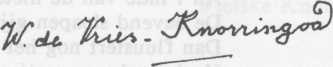 W de Vries - Knorringa